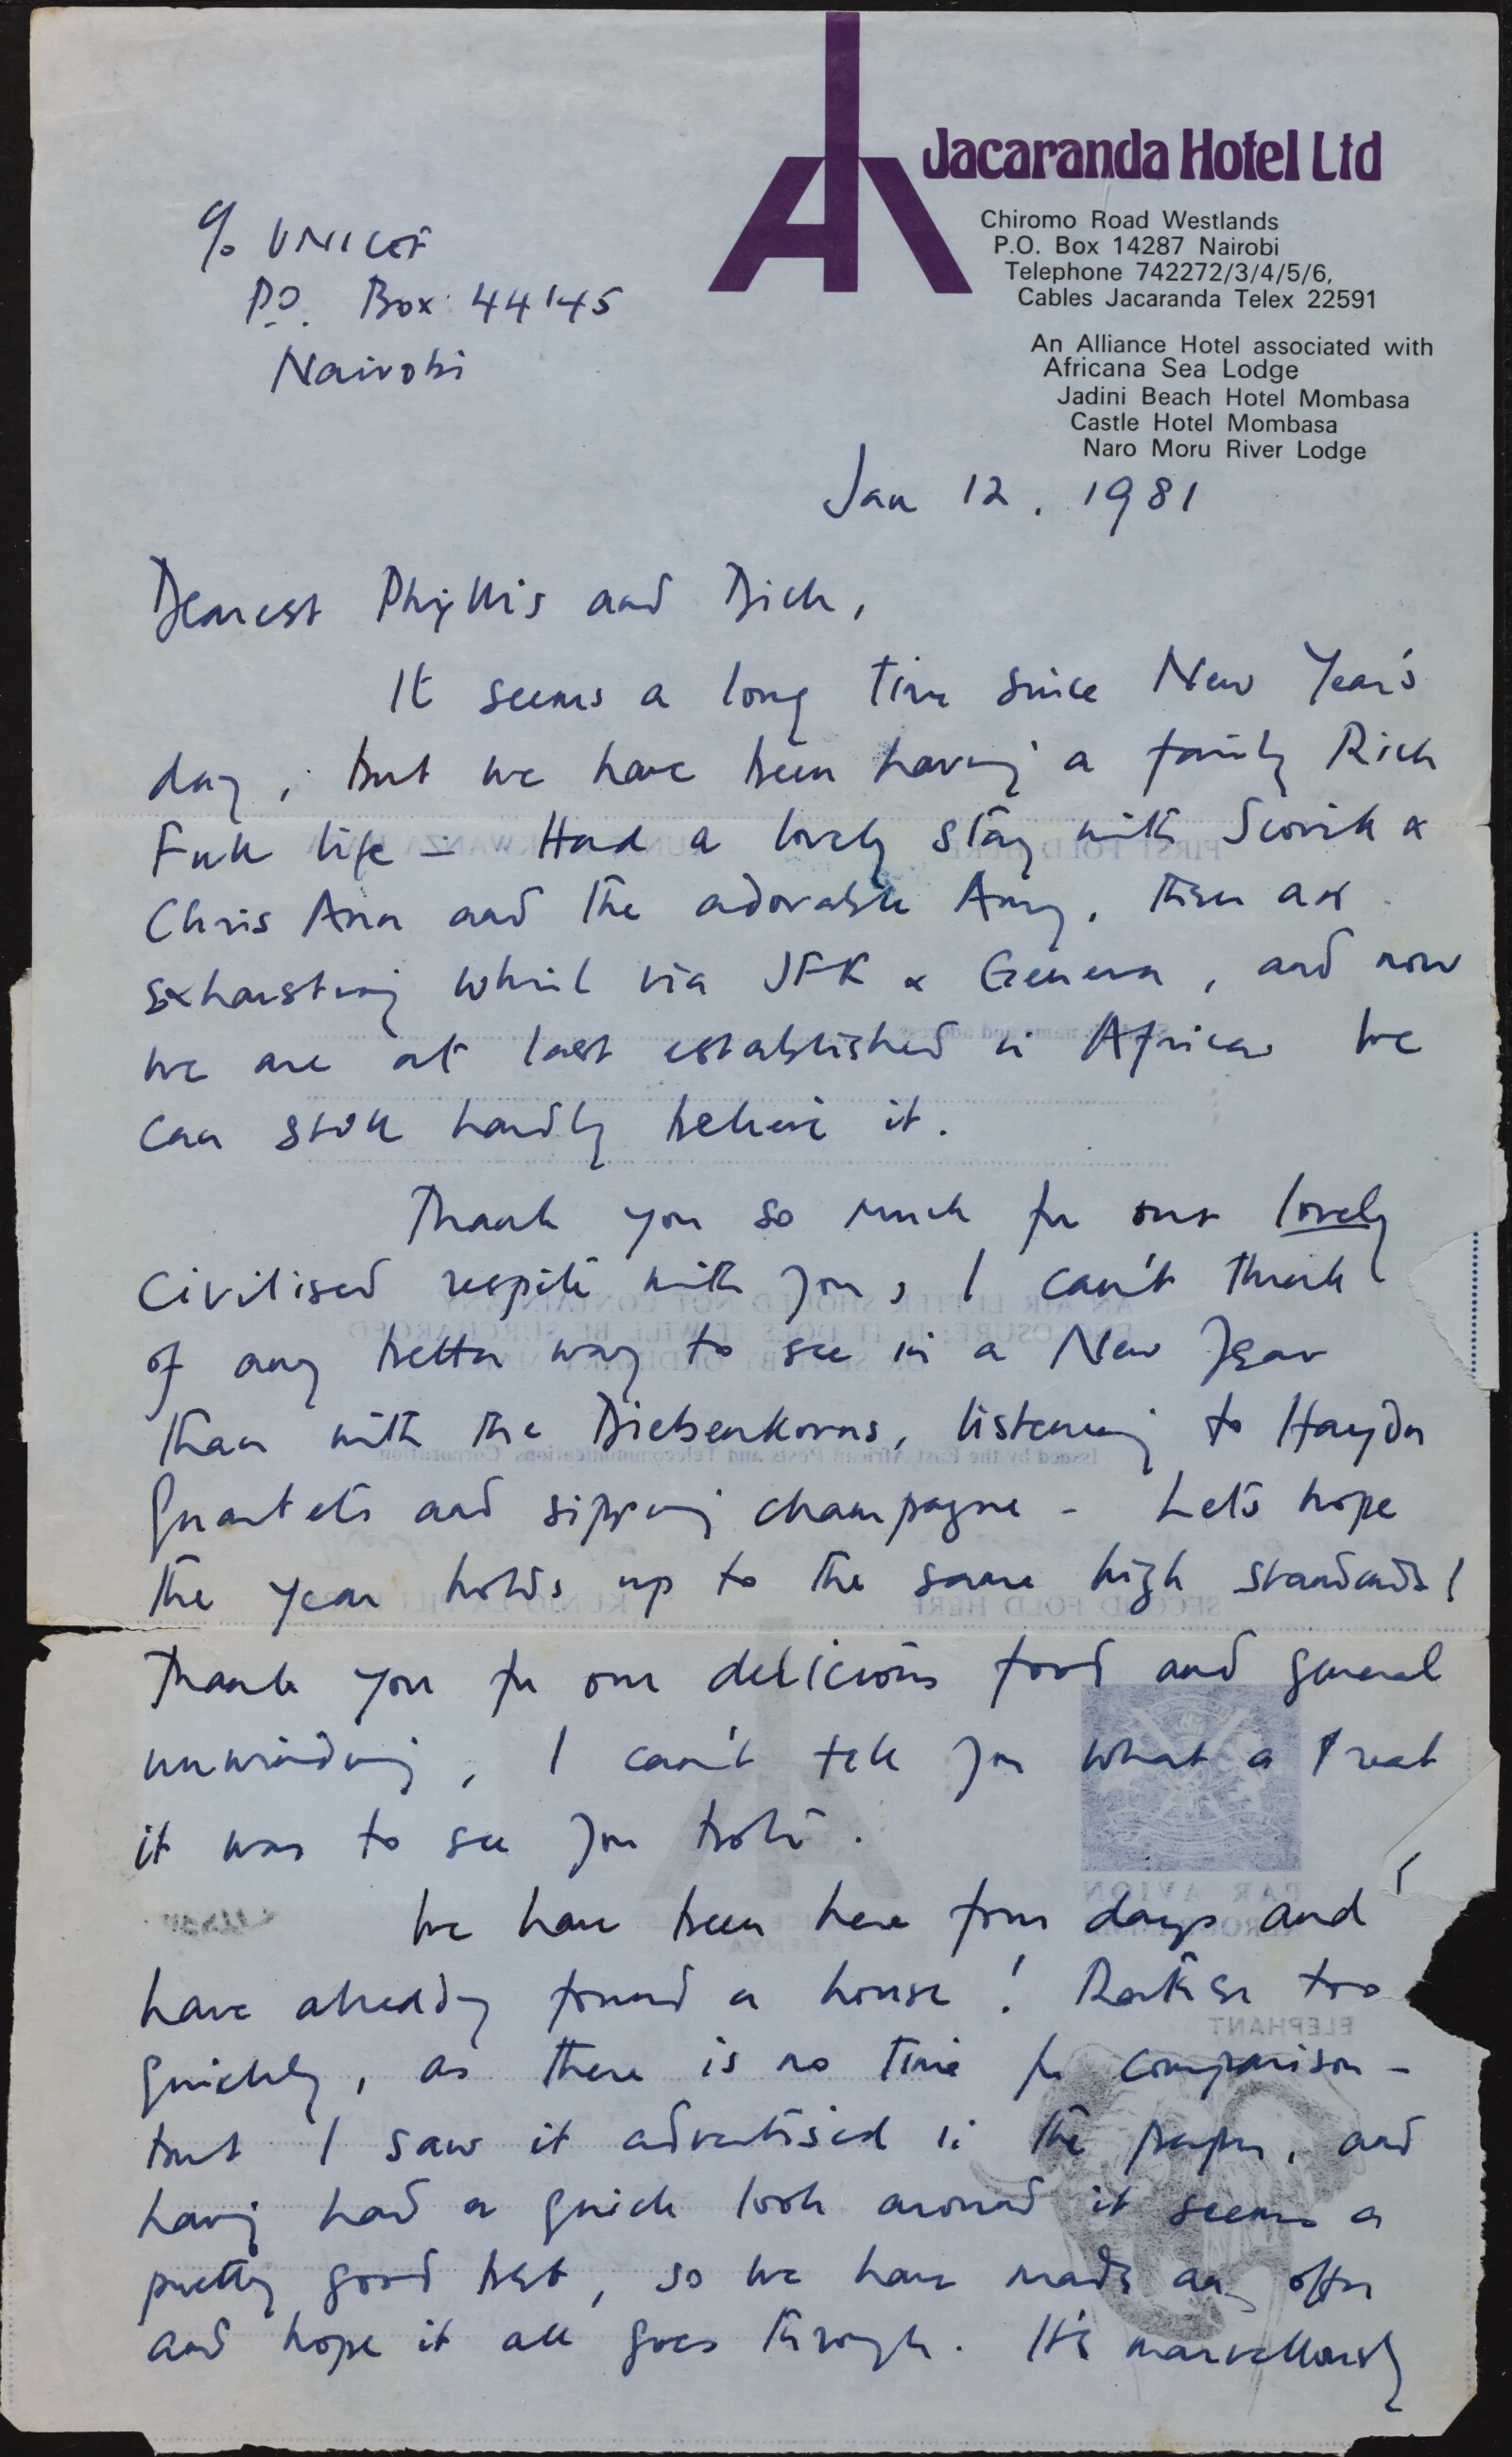 Jacaranda Hotel Ltd
Chiromo Road Westlands
P.O. Box 14287 Nairobi
Telephone 742272/3/4/5/6,
Cables Jacaranda Telex 22591
An Alliance Hotel associated with
Africana Sea Lodge
Jadini Beach Hotel Mombasa
Castle Hotel Mombasa
Naro Moru River Lodge
c/o UNICEF
P.O. Box 44145
Nairobi
Jan 12, 1981
Dearest Phyllis and Dick,
It seems a long time since New Year's
day, but we have been having a fairly Rich
Full life – Had a lovely stay with &
Chris Ann and the adorable Amy, then an
exhausting whirl via JFK & Geneva, and now
we are at last established in Africa we
can still hardly believe it.
Thank you so much for our lovely
civilised respite with you, I can't think
of any better way to see in a New Year
than with the Diebenkorns, listening to Haydn
Quartets and sipping champagne – Let's hope
the year holds up to the same high standards!
Thank you for our delicious food and general
unwinding, I can't tell you what a treat
it was to see you both.
We have been here four days and
have already found a house! Rather too
quickly, as there is no time for comparison –
but I saw it advertised in the paper, and
having had a quick look around it seems a
pretty good bet, so we have made an offer
and hope it all goes through. It's marvellously
FIRST FOLD HERE
KUNJO LA KWANZA
Sender's name and address
AN AIR LETTER SHOULD NOT CONTAIN ANY
ENCLOSURE: IF IT DOES IT WILL BE SURCHARGED
OR SENT BY ORDINARY MAIL
Issued by the East African Posts and Telecommunications Corporation
SECOND FOLD HERE
KUNJO LA PILI
PAR AVION
ELEPHANT